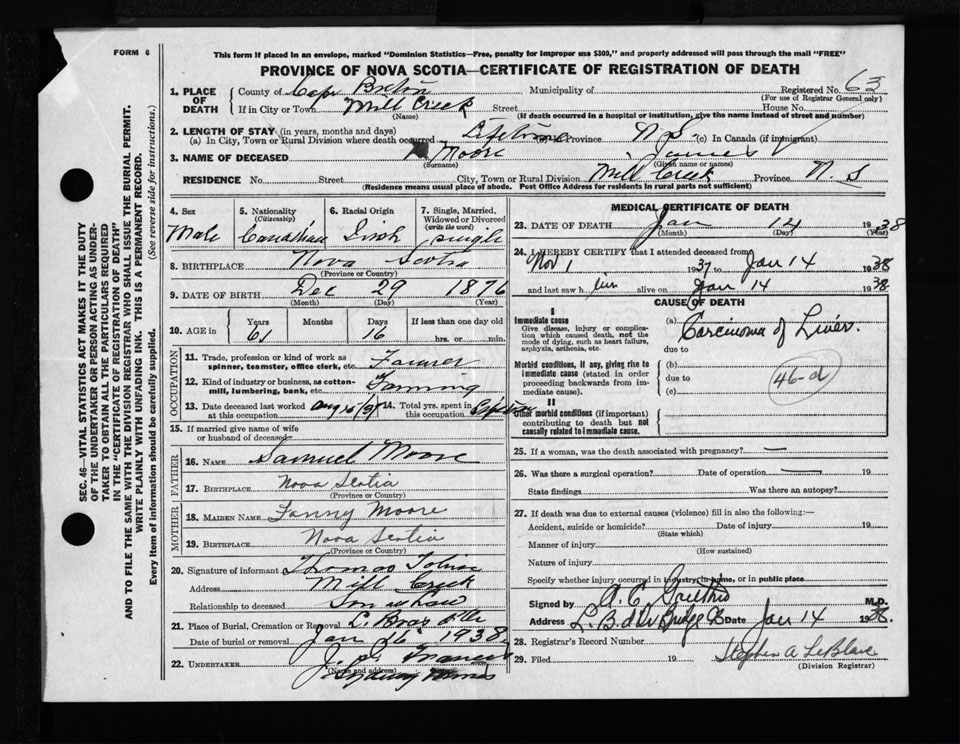 FORM 6
This form if placed in an envelope, marked "Dominion Statistics—Free, penalty for improper use $300," and properly addressed will pass through the mail "FREE"
PROVINCE OF NOVA SCOTIA—CERTIFICATE OF REGISTRATION OF DEATH
SEC. 46—VITAL STATISTICS ACT MAKES IT THE DUTY
OF THE UNDERTAKER OR PERSON ACTING AS UNDER-
TAKER TO OBTAIN ALL THE PARTICULARS REQUIRED
IN THE "CERTIFICATE OF REGISTRATION OF DEATH"
AND TO FILE THE SAME WITH THE DIVISION REGISTRAR WHO SHALL ISSUE THE BURIAL PERMIT.
WRITE PLAINLY WITH UNFADING INK. THIS IS A PERMANENT RECORD.
Every item of information should be carefully supplied. (See reverse side for instructions.)
1. PLACE OF DEATH
County of Cape Breton Municipality of Registered No. 63
(For use of Registrar General only)
If in City or Town Mill Creek Street House No.
(Name) (If death occurred in a hospital or institution, give the name instead of street and number)
2. LENGTH OF STAY (in years, months and days)
(a) In City, Town or Rural Division where death occurred Lifetime (b) Province N.S. (c) In Canada (if immigrant)
3. NAME OF DECEASED Moore James
(Surname) (Given name or names)
RESIDENCE No. Street City, Town or Rural Division Mill Creek Province N.S
(Residence means usual place of abode. Post Office Address for residents in rural parts not sufficient)
4. Sex Male
5. Nationality (Citizenship) Canadian
6. Racial Origin Irish
7. Single, Married, Widowed or Divorced (write the word) single
8. BIRTHPLACE Nova Scotia
(Province or Country)
9. DATE OF BIRTH Dec 29 1876
(Month) (Day) (Year)
10. AGE in Years Months Days If less than one day old
61 16 hrs. or min.
OCCUPATION
11. Trade, profession or kind of work as spinner, teamster, office clerk, etc. Farmer
12. Kind of industry or business, as cotton-mill, lumbering, bank, etc. Farming
13. Date deceased last worked at this occupation Aug 15/37 14. Total yrs. spent in this occupation
15. If married give name of wife or husband of deceased
FATHER
16. NAME Samuel Moore
17. BIRTHPLACE Nova Scotia
(Province or Country)
MOTHER
18. MAIDEN NAME Fanny Moore
19. BIRTHPLACE Nova Scotia
(Province or Country)
20. Signature of informant Thomas Tobin
Address Mill Creek
Relationship to deceased Son in Law
21. Place of Burial, Cremation or Removal L. Bras d'Or
Date of burial or removal Jan 16 1938
22. UNDERTAKER J. Francis
(Name and address)
Sydney Mines
MEDICAL CERTIFICATE OF DEATH
23. DATE OF DEATH Jan 14 1938
(Month) (Day) (Year)
24. I HEREBY CERTIFY that I attended deceased from
Nov 1 1937 to Jan 14 1938
and last saw h im alive on Jan 14 1938
CAUSE OF DEATH
I
Immediate cause
Give disease, injury or complication which caused death, not the mode of dying, such as heart failure, asphyxia, asthenia, etc.
(a) Carcinoma of Liver.
due to
Morbid conditions, if any, giving rise to immediate cause (stated in order proceeding backwards from immediate cause).
(b)
due to
(c)
46-d
II
Other morbid conditions (if important) contributing to death but not causally related to immediate cause.
25. If a woman, was the death associated with pregnancy? —
26. Was there a surgical operation? Date of operation — 19
State findings Was there an autopsy?
27. If death was due to external causes (violence) fill in also the following:—
Accident, suicide or homicide? Date of injury 19
(State which)
Manner of injury
(How sustained)
Nature of injury
Specify whether injury occurred in industry, in home, or in public place
Signed by M.D.
Address Date Jan 14 1938.
28. Registrar's Record Number
29. Filed 19 Stephen A LeBlanc
(Division Registrar)